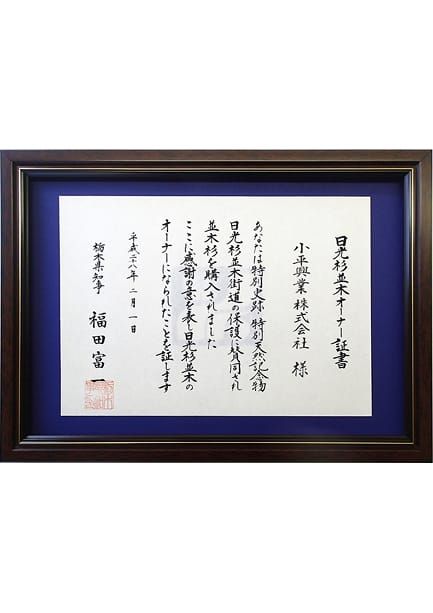 日光杉並木オーナー証書
小平興業株式会社 様
あなたは特別史跡 特別天然記念物
日光杉並木街道の保護に賛同され
並木杉を購入されました
ここに感謝の意を表し日光杉並木の
オーナーになられたことを証します
平成二十八年 二月 一日
栃木県知事 福田富一